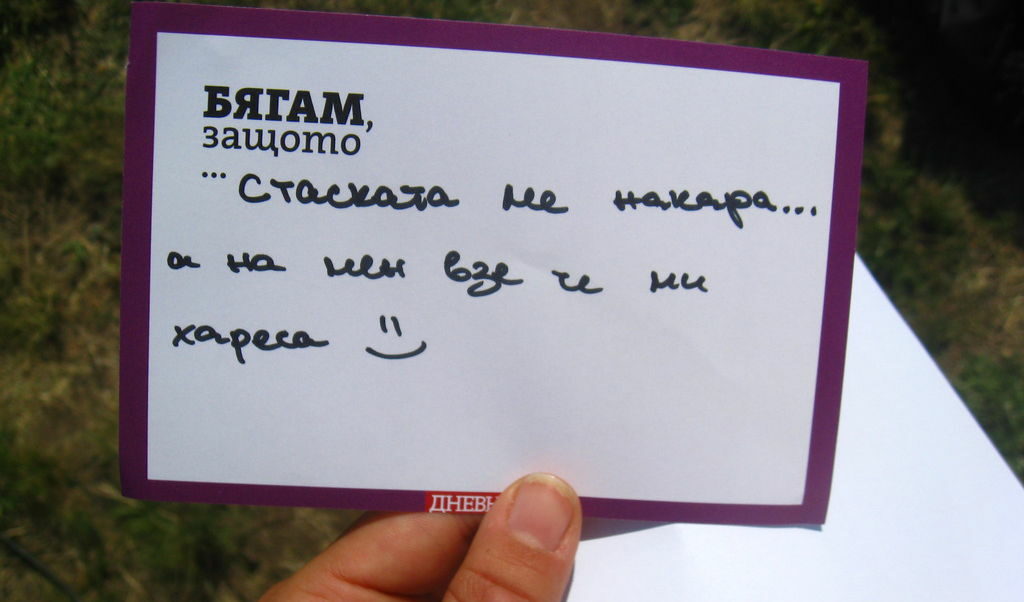 БЯГАМ,
защото
... Стаската ме накара...
а на мен взе че ми
хареса
ДНЕВН